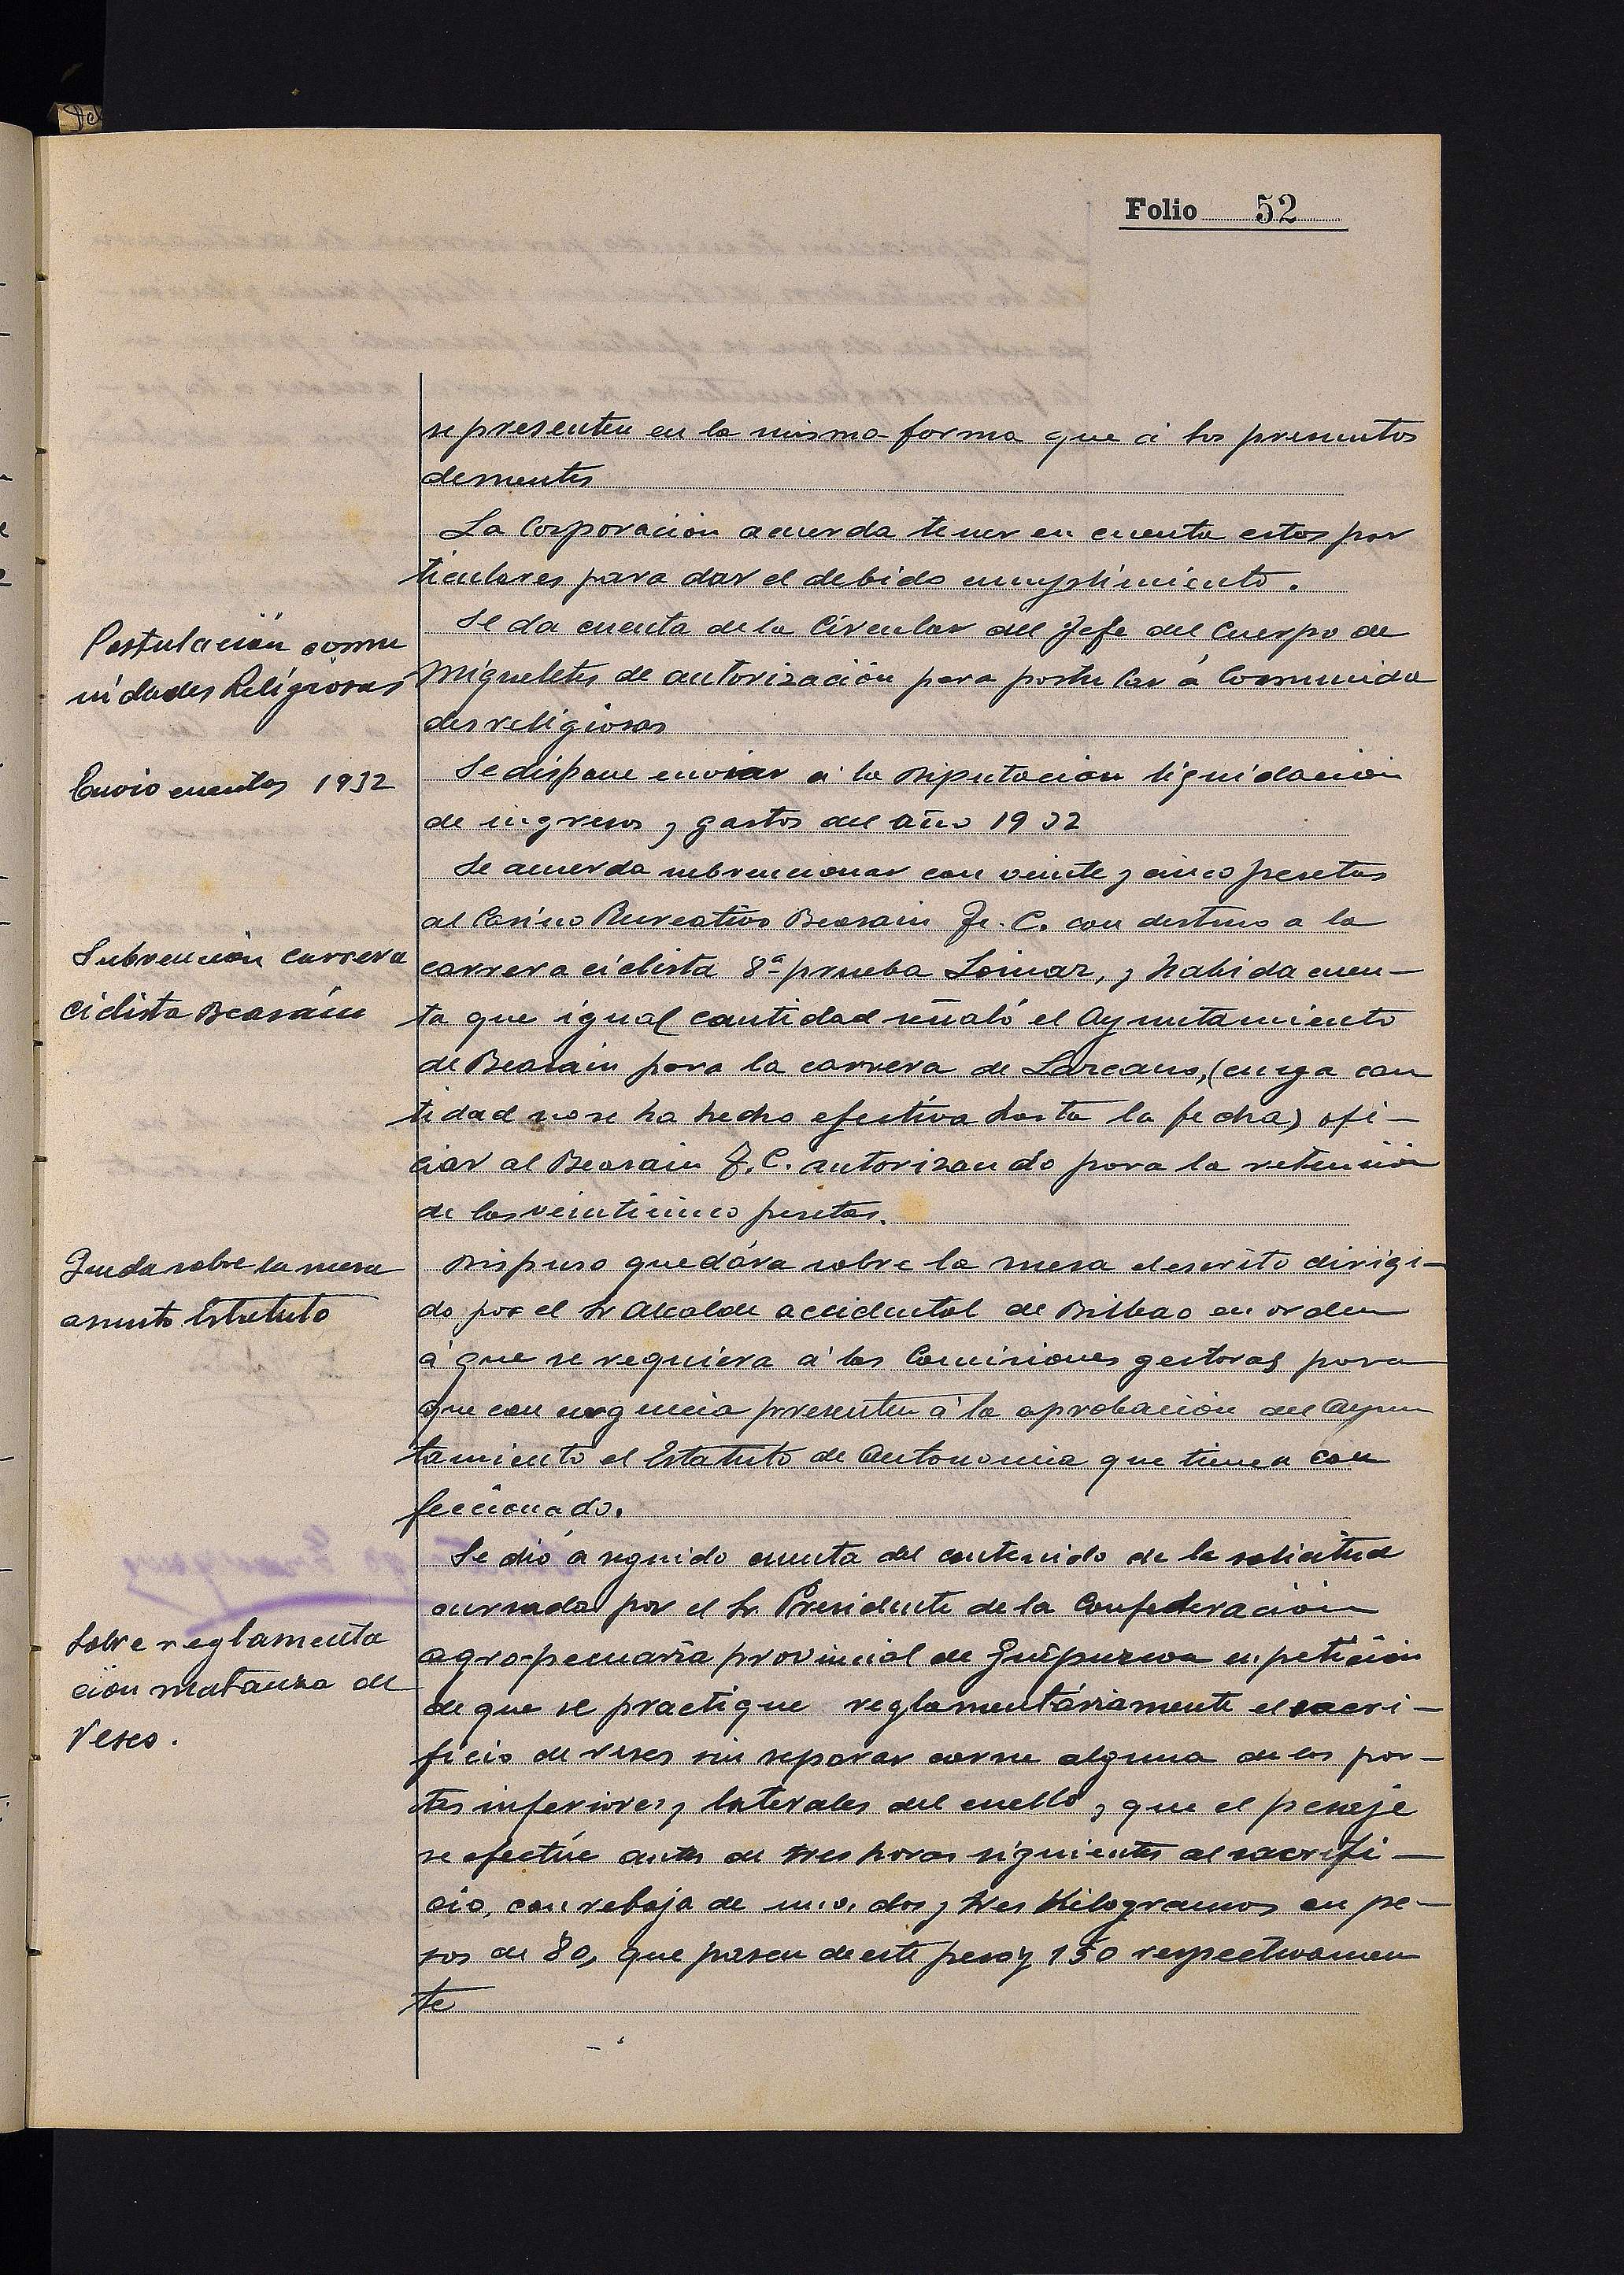 Folio 52
se presenten en la misma forma que á los presuntos
dementes
La Corporación acuerda tener en cuenta estos par
ticulares para dar el debido cumplimiento.
Postulación comu
nidades Religiosas
Se da cuenta de la Circular del Jefe del Cuerpo de
Miqueletes de autorización para postular á Comunida
des religiosas
Envio cuentas 1932
Se dispone enviar á la Diputación liquidación
de ingresos y gastos del año 1932
Subvención carrera
ciclista Beasáin
Se acuerda subvencionar con veinte y cinco pesetas
al Casino Recreativo Beasain F. C. con destino a la
carrera ciclista 8ª prueba Loinaz, y habida cuen-
ta que igual cantidad señaló el Ayuntamiento
de Beasain para la carrera de Lazcano, (cuya can
tidad no se ha hecho efectiva hasta la fecha) ofi-
ciar al Beasain F. C. autorizando para la retención
de las veinticinco pesetas.
Queda sobre la mesa
asunto Estatuto
Dispuso quedára sobre la mesa el escrito dirigi-
do por el Sr Alcalde accidental de Bilbao en orden
á que se requiera á las Comisiones gestoras para
que con urgencia presenten á la aprobación del Ayun
tamiento el Estatuto de Autonomia que tienen con
feccionado.
Sobre reglamenta
ción matanza de
reses.
Se dió á seguido cuenta del contenido de la solicitud
cursada por el Sr. Presidente de la Confederación
agro-pecuaria provincial de Guipuzcoa en petición
de que se practique reglamentáriamente el sacri-
ficio de reses sin separar carne alguna de las par-
tes inferiores y laterales del cuello, y que el pesaje
se efectúe antes de tres horas siguientes al sacrifi-
cio, con rebaja de uno, dos y tres Kilogramos en pe-
sos de 80, que pasen de este peso y 150 respectivamen
te